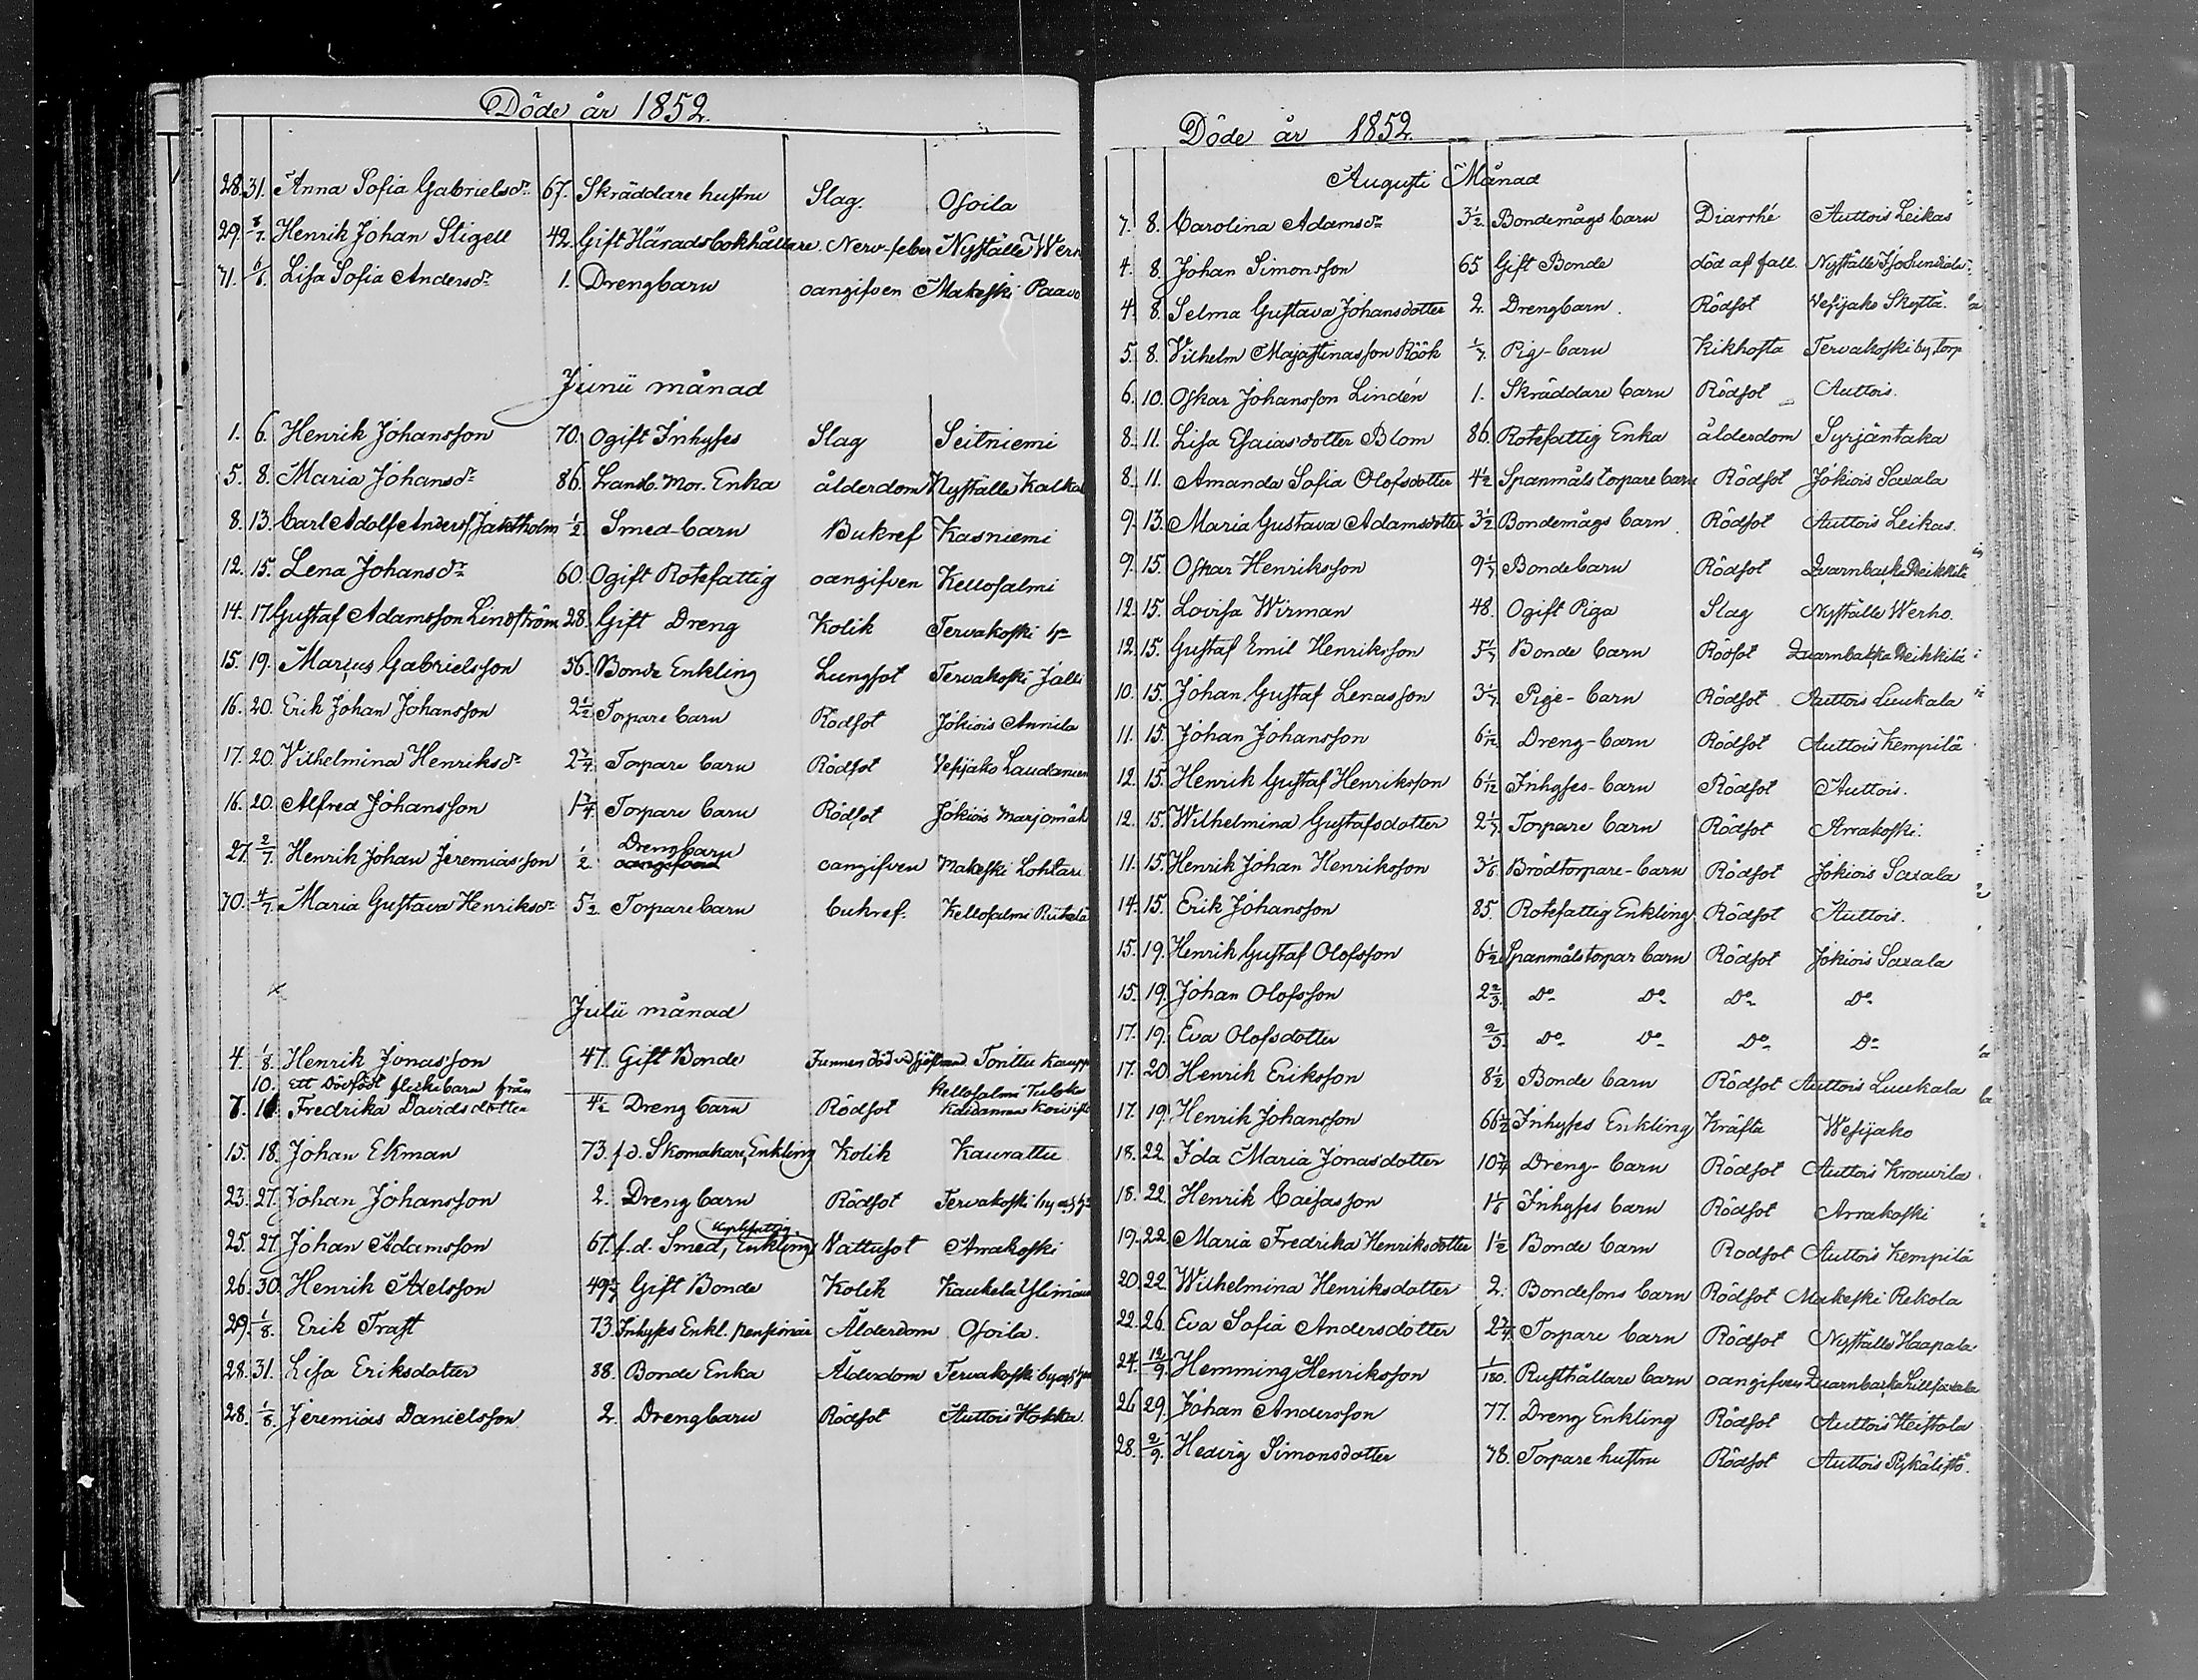 Döde år 1852.
28. 31. Anna Sofia Gabrielsdr. 67. Skräddare hustru Slag. Ojoila
29. 8/7. Henrik Johan Stigell 42. Gift Häradsbokhållare. Nerv-feber Nyställe Werh
71. 6/6. Lisa Sofia Andersdr. 1. Drengbarn oangifven Makeski Paavo
Junii månad
1. 6. Henrik Johansson 70. Ogift Inhyses Slag Seitniemi
5. 8. Maria Johansdr. 86. Landb. Mor. Enka ålderdom Nyställe Kalkal
8. 13. Carl Adolf Anders. Jaktholm 1/2. Smed-barn Bukref Kasniemi
12. 15. Lena Johansdr. 60. Ogift Rotefattig oangifven Kellosalmi
14. 17. Gustaf Adamsson Lindström 28. Gift Dreng Kolik Tervakoski by
15. 19. Marcus Gabrielsson 56. Bonde Enkling Lungsot Tervakoski Jalli
16. 20. Erik Johan Johansson 2 1/2. Torpare barn Rödsot Jokiois Annila
17. 20. Vilhelmina Henriksdr. 2 3/4. Torpare barn Rödsot Vesijako Laudanien
16. 20. Alfred Johansson 1 3/4. Torpare barn Rödsot Jokiois Marjomäk
27. 2/7. Henrik Johan Jeremiasson 1/2. Drengbarn oangifven Makeski Lohtari
70. 4/7. Maria Gustava Henriksdr. 5 1/2. Torpare barn bukref. Kellosalmi Rutala
Julii månad
4. 1/8. Henrik Jonasson 47. Gift Bonde Funnen död vid sjöstrand Tonittu Kauppi
10. Ett Dödfödt flickebarn från Kellosalmi Tuloke
7. 11. Fredrika Davidsdotter 4 1/2 Dreng barn Rödsot Kaidanen Koivisto
15. 18. Johan Ekman 73. f.d. Skomakare, Enkling Kolik Kaurattu
23. 27. Johan Johansson 2. Dreng barn Rödsot Tervakoski by
25. 27. Johan Adamsson 67. f.d. Smed, Enkling Vattusot Arrakoski
26. 30. Henrik Axelsson 49 1/7 Gift Bonde Kolik Kaukela Ylimäen
29. 1/8. Erik Traft 73. Inhyses Enkl. pensionär Ålderdom Ojoila.
28. 31. Lisa Eriksdotter 88. Bonde Enka Ålderdom Tervakoski by
28. 1/8. Jeremias Danielsson 2. Drengbarn Rödsot Auttois Hokka.
Döde år 1852.
Augusti Månad
7. 8. Carolina Adamsdr. 3 1/2. Bondemågs barn Diarrhé Auttois Leikas
4. 8. Johan Simonsson 65 Gift Bonde död af fall. Nyställe
4. 8. Selma Gustava Johansdotter 2. Drengbarn. Rödsot Vesijako Skyttä.
5. 8. Vilhelm Majastinasson Röök 1/7. Pig-barn Kikhosta Tervakoski by torp
6. 10. Oskar Johansson Lindén 1. Skräddare barn Rödsot Auttois.
8. 11. Lisa Esaiasdotter Blom 86. Rotefattig Enka ålderdom Syrjäntaka
8. 11. Amanda Sofia Olofsdotter 4 1/2 Spanmåls torpare barn Rödsot Jokiois Saxala
9. 13. Maria Gustava Adamsdotter 3 1/2 Bondemågs barn. Rödsot Auttois Leikas.
9. 15. Oskar Henriksson 9 1/7 Bondebarn Rödsot Quarnbacka Reikkilä
12. 15. Lovisa Wirman 48. Ogift Piga Slag Nyställe Werho.
12. 15. Gustaf Emil Henriksson 5 1/7 Bonde barn Rödsot Quarnbacka Reikkilä
10. 15. Johan Gustaf Lenasson 3 1/7. Pige-barn Rödsot Auttois Luukala
11. 15. Johan Johansson 6 1/12 Dreng-barn Rödsot Auttois Kempilä
12. 15. Henrik Gustaf Henriksson 6 1/12 Inhyses-barn Rödsot Auttois.
12. 15. Wilhelmina Gustafsdotter 2 1/7. Torpare barn Rödsot Arrakoski.
11. 15. Henrik Johan Henriksson 3 1/6. Brödtorpare-barn Rödsot Jokiois Saxala
14. 15. Erik Johansson 85. Rotefattig Enkling Rödsot Auttois.
15. 19. Henrik Gustaf Olofsson 6 1/2 Spanmålstorpar barn Rödsot Jokiois Saxala
15. 19. Johan Olofsson 2 2/3. Do Do Do Do
17. 19. Eva Olofsdotter 2/3. Do Do Do Do
17. 20. Henrik Eriksson 8 1/2 Bonde barn Rödsot Auttois Luukala
17. 19. Henrik Johansson 66 1/2 Inhyses Enkling Kräfta Wesijako
18. 22. Ida Maria Jonasdotter 10 3/4 Dreng-barn Rödsot Auttois Krouvila
18. 22. Henrik Caisasson 1 1/6 Inhyses barn Rödsot Arrakoski
19. 22. Maria Fredrika Henriksdotter 1 1/2 Bonde barn Rodsot Auttois Kempilä
20. 22. Wilhelmina Henriksdotter 2. Bondesons barn Rödsot Makeski Rekola
22. 26. Eva Sofia Andersdotter 2 3/4 Torpare barn Rödsot Nyställe Haapala
24. 12/9. Hemming Henriksson 1/180. Rusthållare barn oangifven Quarnbacka Lillsaxala
26. 29. Johan Andersson 77. Dreng Enkling Rödsot Auttois Heistola
28. 2/9. Hedvig Simonsdotter 78. Torpare hustru Rödsot Auttois Pykälistö.